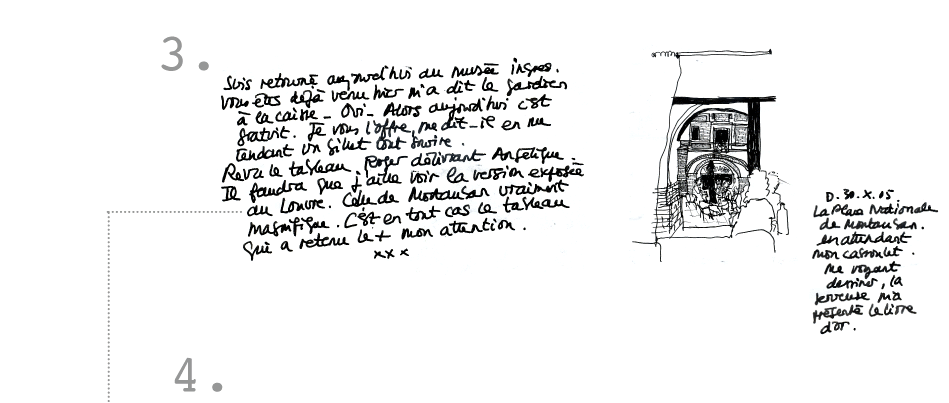 3.
Suis retourné aujourd'hui au musée ingres.
Vous êtes déjà venu hier m'a dit le gardien
à la caisse - Oui - Alors aujourd'hui c'est
gratuit. Je vous l'offre, me dit-il en me
tendant un billet tout
Revu le tableau. Roger délivrant Angélique.
Il faudra que j'aille voir la version exposée
au Louvre. Celle de Montauban vraiment
magnifique. C'est en tout cas le tableau
qui a retenu le + mon attention.
x x x
D. 30. X. 05
La Place Nationale
de Montauban.
en attendant
mon cassoulet.
me voyant
dessiner, la
serveuse m'a
présenté le livre
d'or.
4.